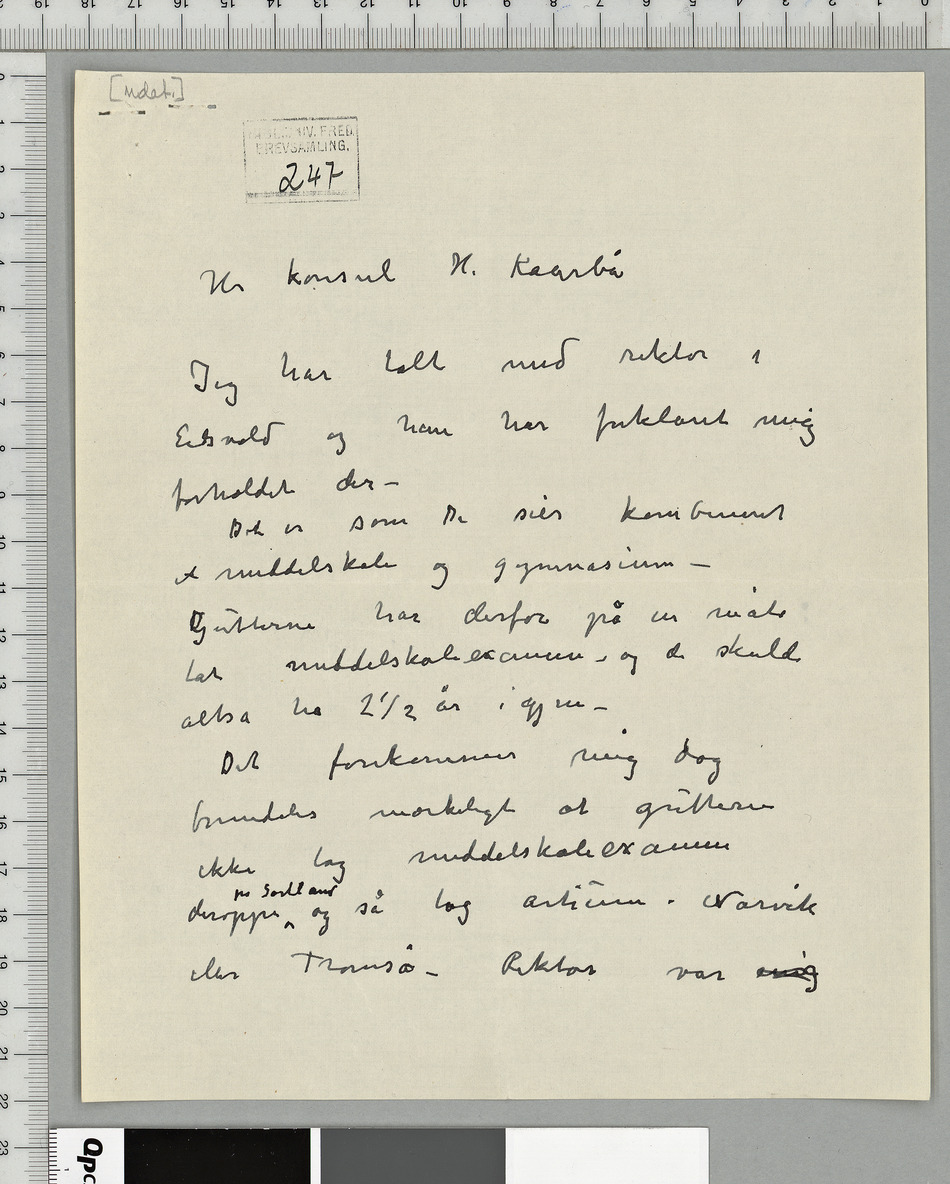 [udat.]
BREVSAMLING.
247
Hr konsul H. Kaarbø
Jeg har talt med rektor i
Eidsvold og han har forklaret mig
forholdet der –
Det er som De sier kombineret
middelskole og gymnasium –
Gutterne har derfor på en måte
tat middelskoleexamen – og de skulde
altså ha 2 1/2 år i gym –
Det forekommer mig dog
fremdeles merkeligt at gutterne
ikke tog middelskoleexamen
på Sortland
deroppe og så tog artium i Narvik
eller Tromsø – Rektor var mig